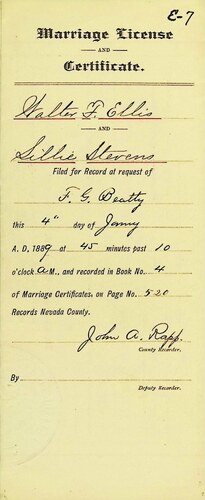 E-7
Marriage License
AND
Certificate.
Walter F. Ellis
AND
Lillie Stevens
Filed for Record at request of
F. G. Beatty
this 4" day of Jany
A. D. 1889 at 45 minutes past 10
o'clock A.M., and recorded in Book No. 4
of Marriage Certificates, on Page No. 520
Records Nevada County.
John A. Rapp.
County Recorder.
By
Deputy Recorder.